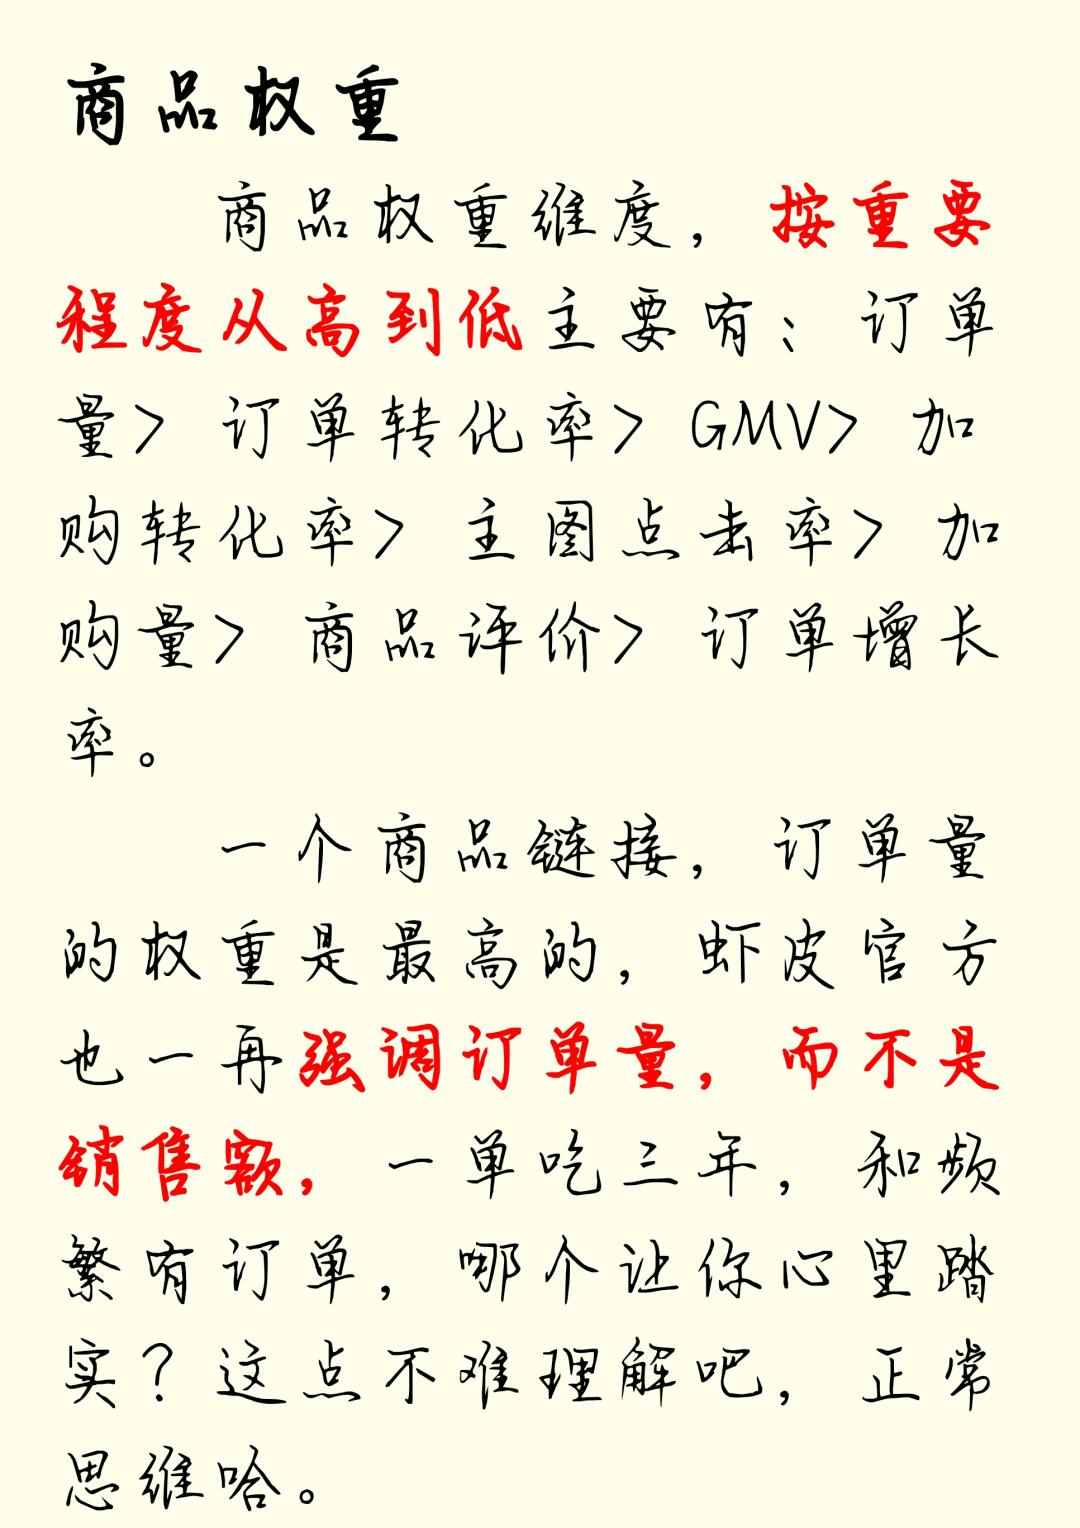 商品权重
商品权重维度，按重要
程度从高到低主要有：订单
量> 订单转化率> GMV> 加
购转化率> 主图点击率> 加
购量> 商品评价> 订单增长
率。
一个商品链接，订单量
的权重是最高的，虾皮官方
也一再强调订单量，而不是
销售额，一单吃三年，和频
繁有订单，哪个让你心里踏
实？这点不难理解吧，正常
思维哈。